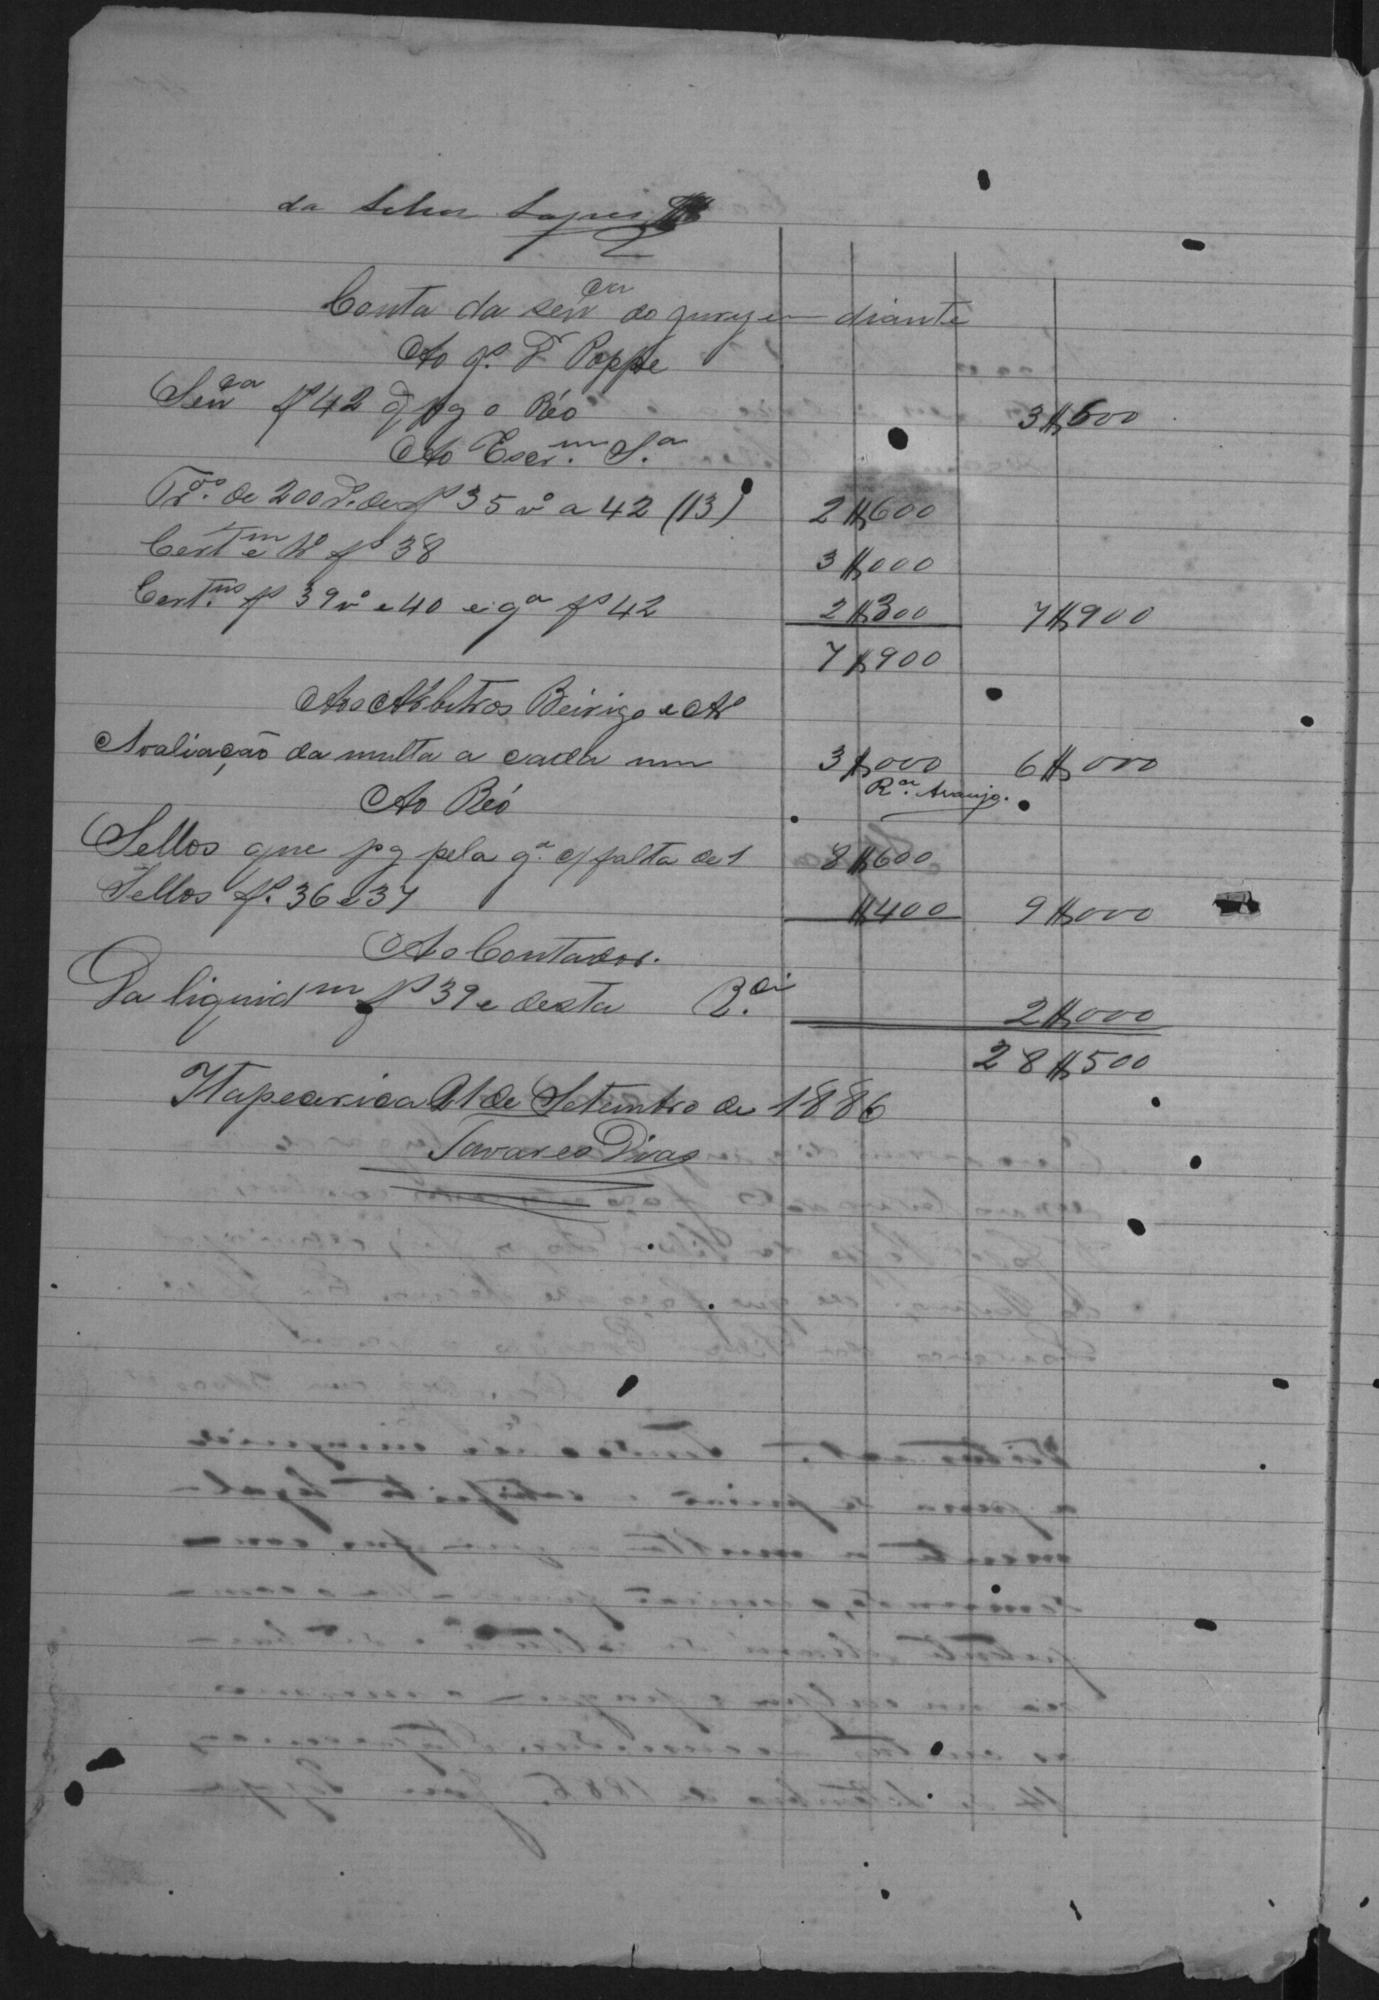 da Silva Lopes
Conta da senca do jury em diante
Ao Jo. Dr. Poppe
Senca fs 42 q pg o Réo 3$600
Ao Escrm Sa
Tros. de 200 rs. de fs 35 vo a 42 (13) 2$600
Certm e fs 38 3$000
Certms fs 39 vo e 40 e ga fs 42 2$300 7$900
7$900
Aos Arbitros Beirigo e Ar
Avaliação da multa a cada um 3$000 6$000
Ror. Araujo.
Ao Réo
Sellos que pg pela ga. c/ falta de 1 8$600
Sellos fs. 36 e 37 $400 9$000
Ao Contador.
Da liquidm fs 39 e desta 2$000
28$500
Itapecerica 21 de Setembro de 1886
Tavares Dias